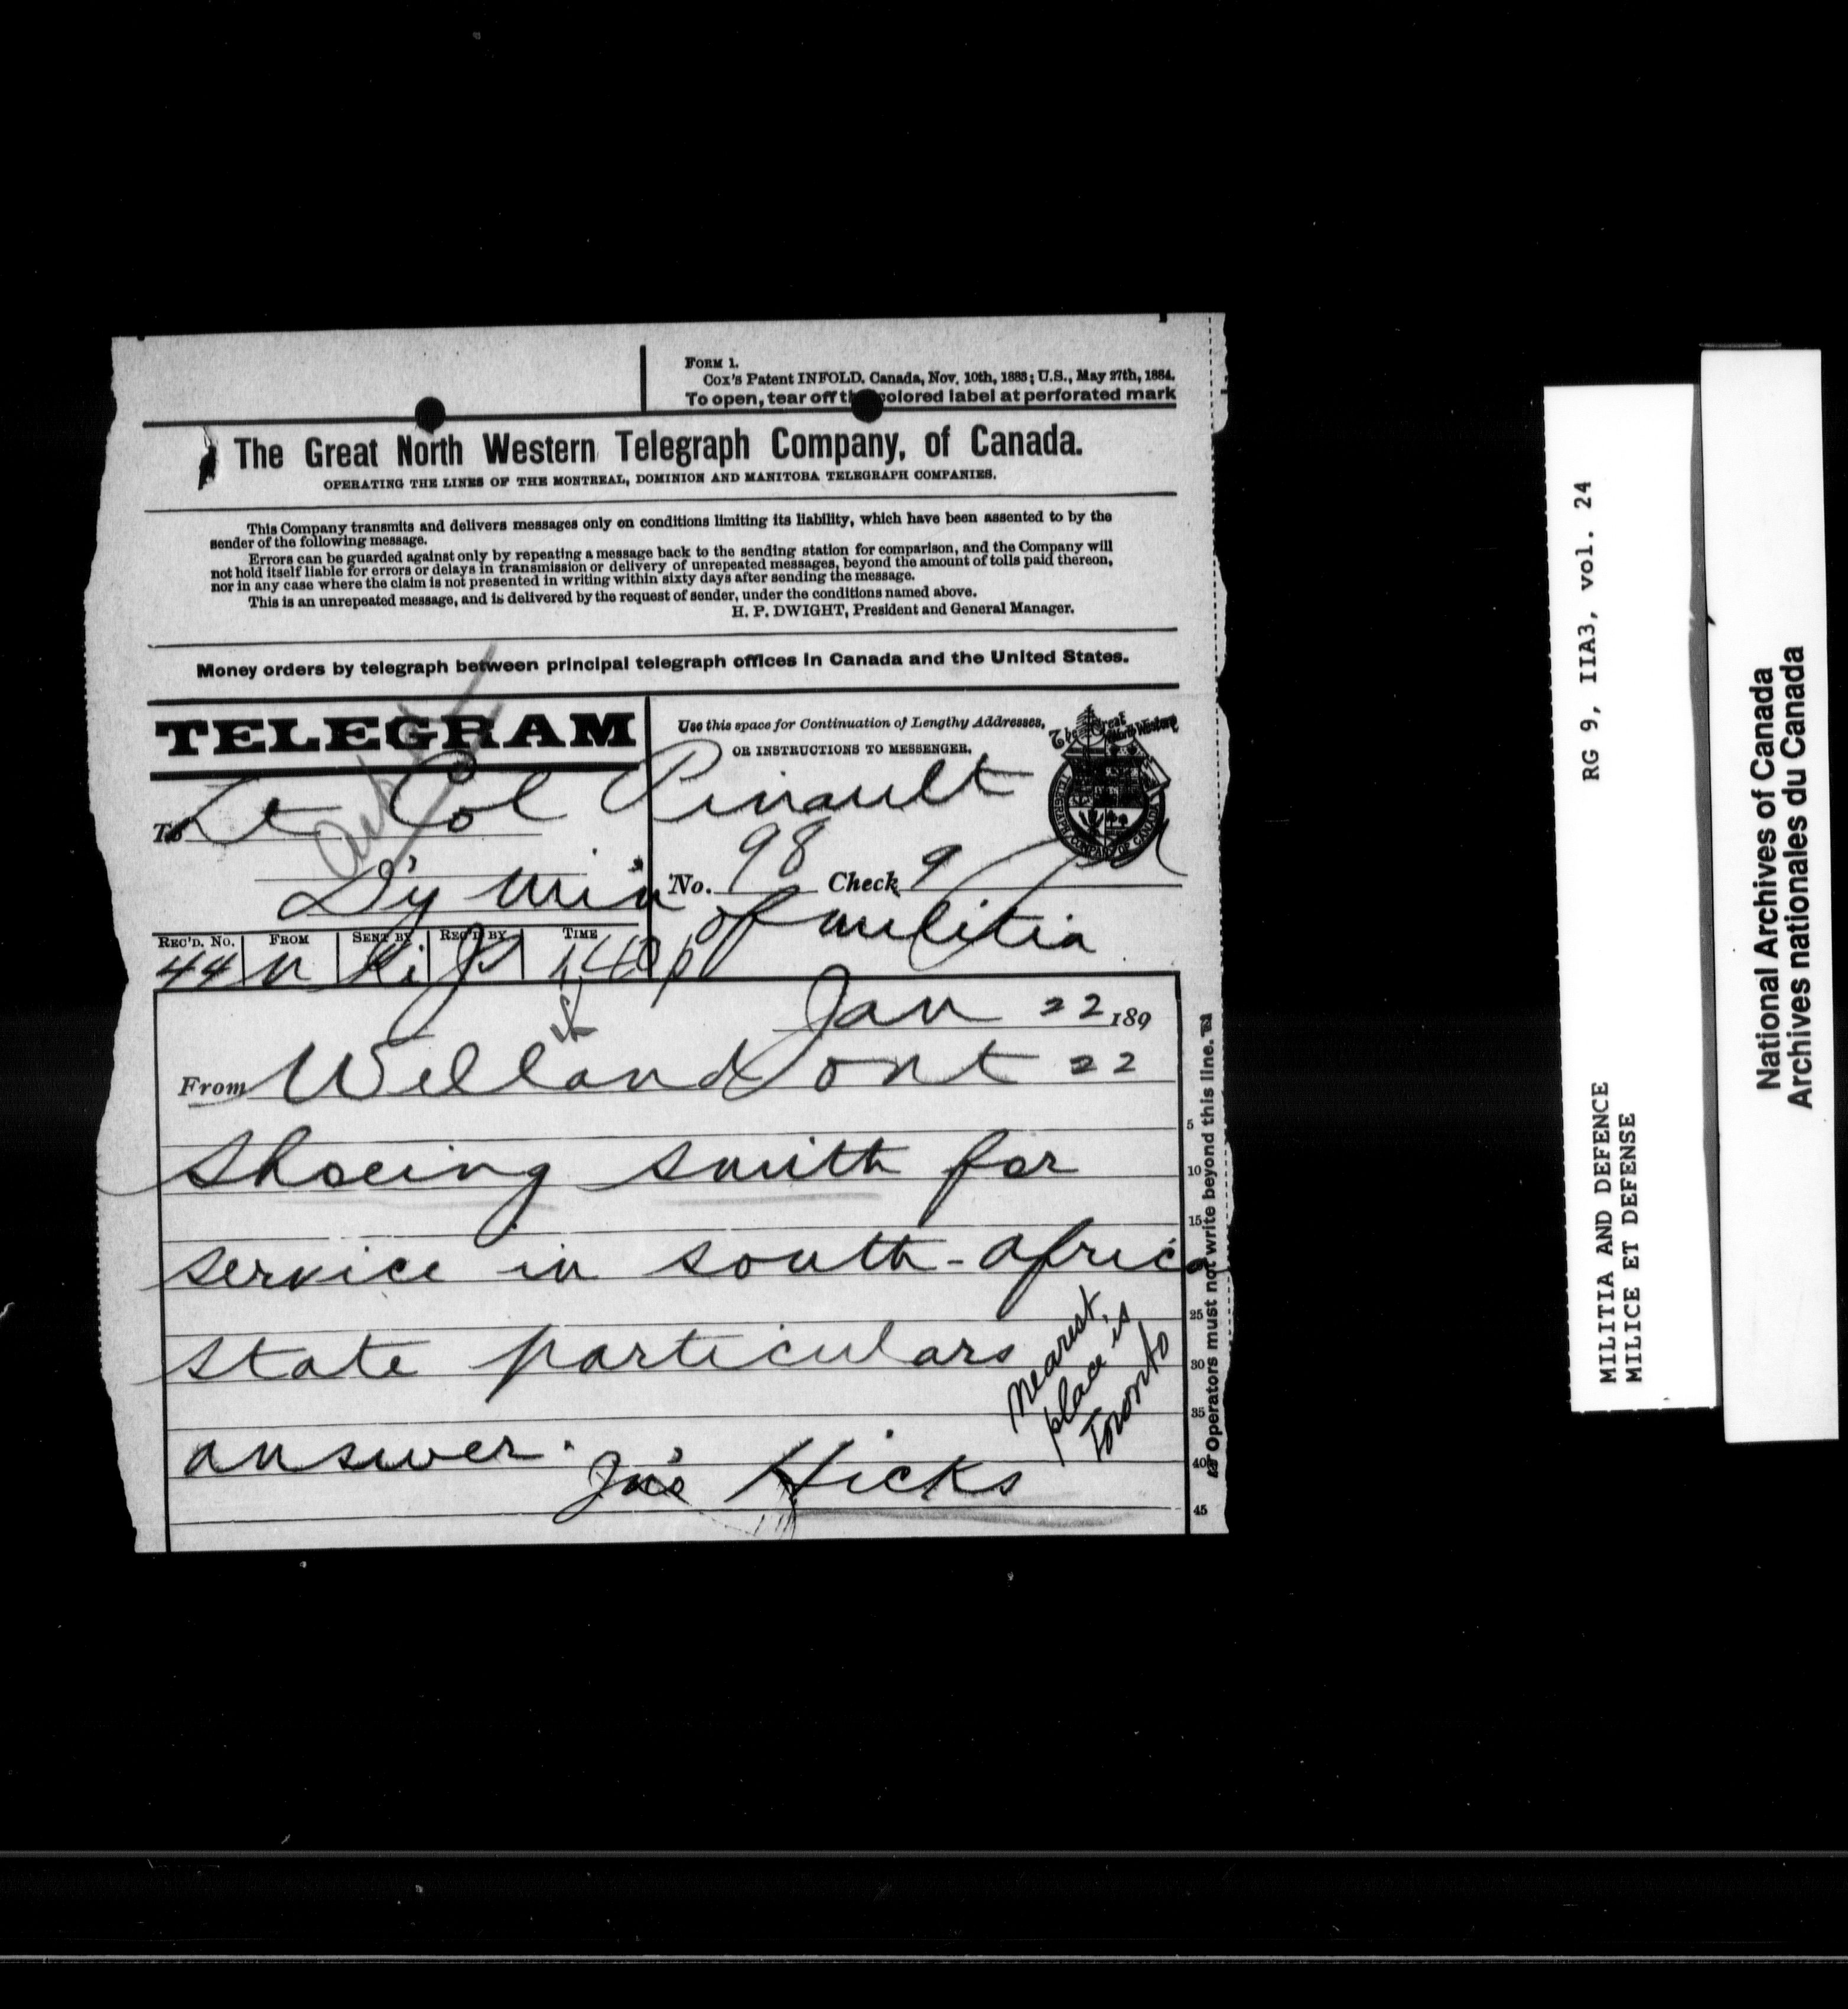 FORM 1.
Cox's Patent INFOLD. Canada, Nov. 10th, 1883; U.S., May 27th, 1884.
To open, tear off the colored label at perforated mark
The Great North Western Telegraph Company, of Canada.
OPERATING THE LINES OF THE MONTREAL, DOMINION AND MANITOBA TELEGRAPH COMPANIES.
This Company transmits and delivers messages only on conditions limiting its liability, which have been assented to by the
sender of the following message.
Errors can be guarded against only by repeating a message back to the sending station for comparison, and the Company will
not hold itself liable for errors or delays in transmission or delivery of unrepeated messages, beyond the amount of tolls paid thereon,
nor in any case where the claim is not presented in writing within sixty days after sending the message.
This is an unrepeated message, and is delivered by the request of sender, under the conditions named above.
H. P. DWIGHT, President and General Manager.
Money orders by telegraph between principal telegraph offices in Canada and the United States.
TELEGRAM
Use this space for Continuation of Lengthy Addresses,
OR INSTRUCTIONS TO MESSENGER.
The Great North Western
TELEGRAPH COMPANY OF CANADA
To Lt Col Pinault
No. 98 Check 9
D'y Min of militia
REC'D. No. FROM SENT BY REC'D BY TIME
44 n Ki 1,40p
Jan 22 189
From Welland Ont 22
Shoeing smith for
service in south-africa
state particulars
answer.
Jno Hicks
nearest
place is
Toronto
5
10
15
25
30
35
40
45
Operators must not write beyond this line.
RG 9, IIA3, vol. 24
MILITIA AND DEFENCE
MILICE ET DEFENSE
National Archives of Canada
Archives nationales du Canada